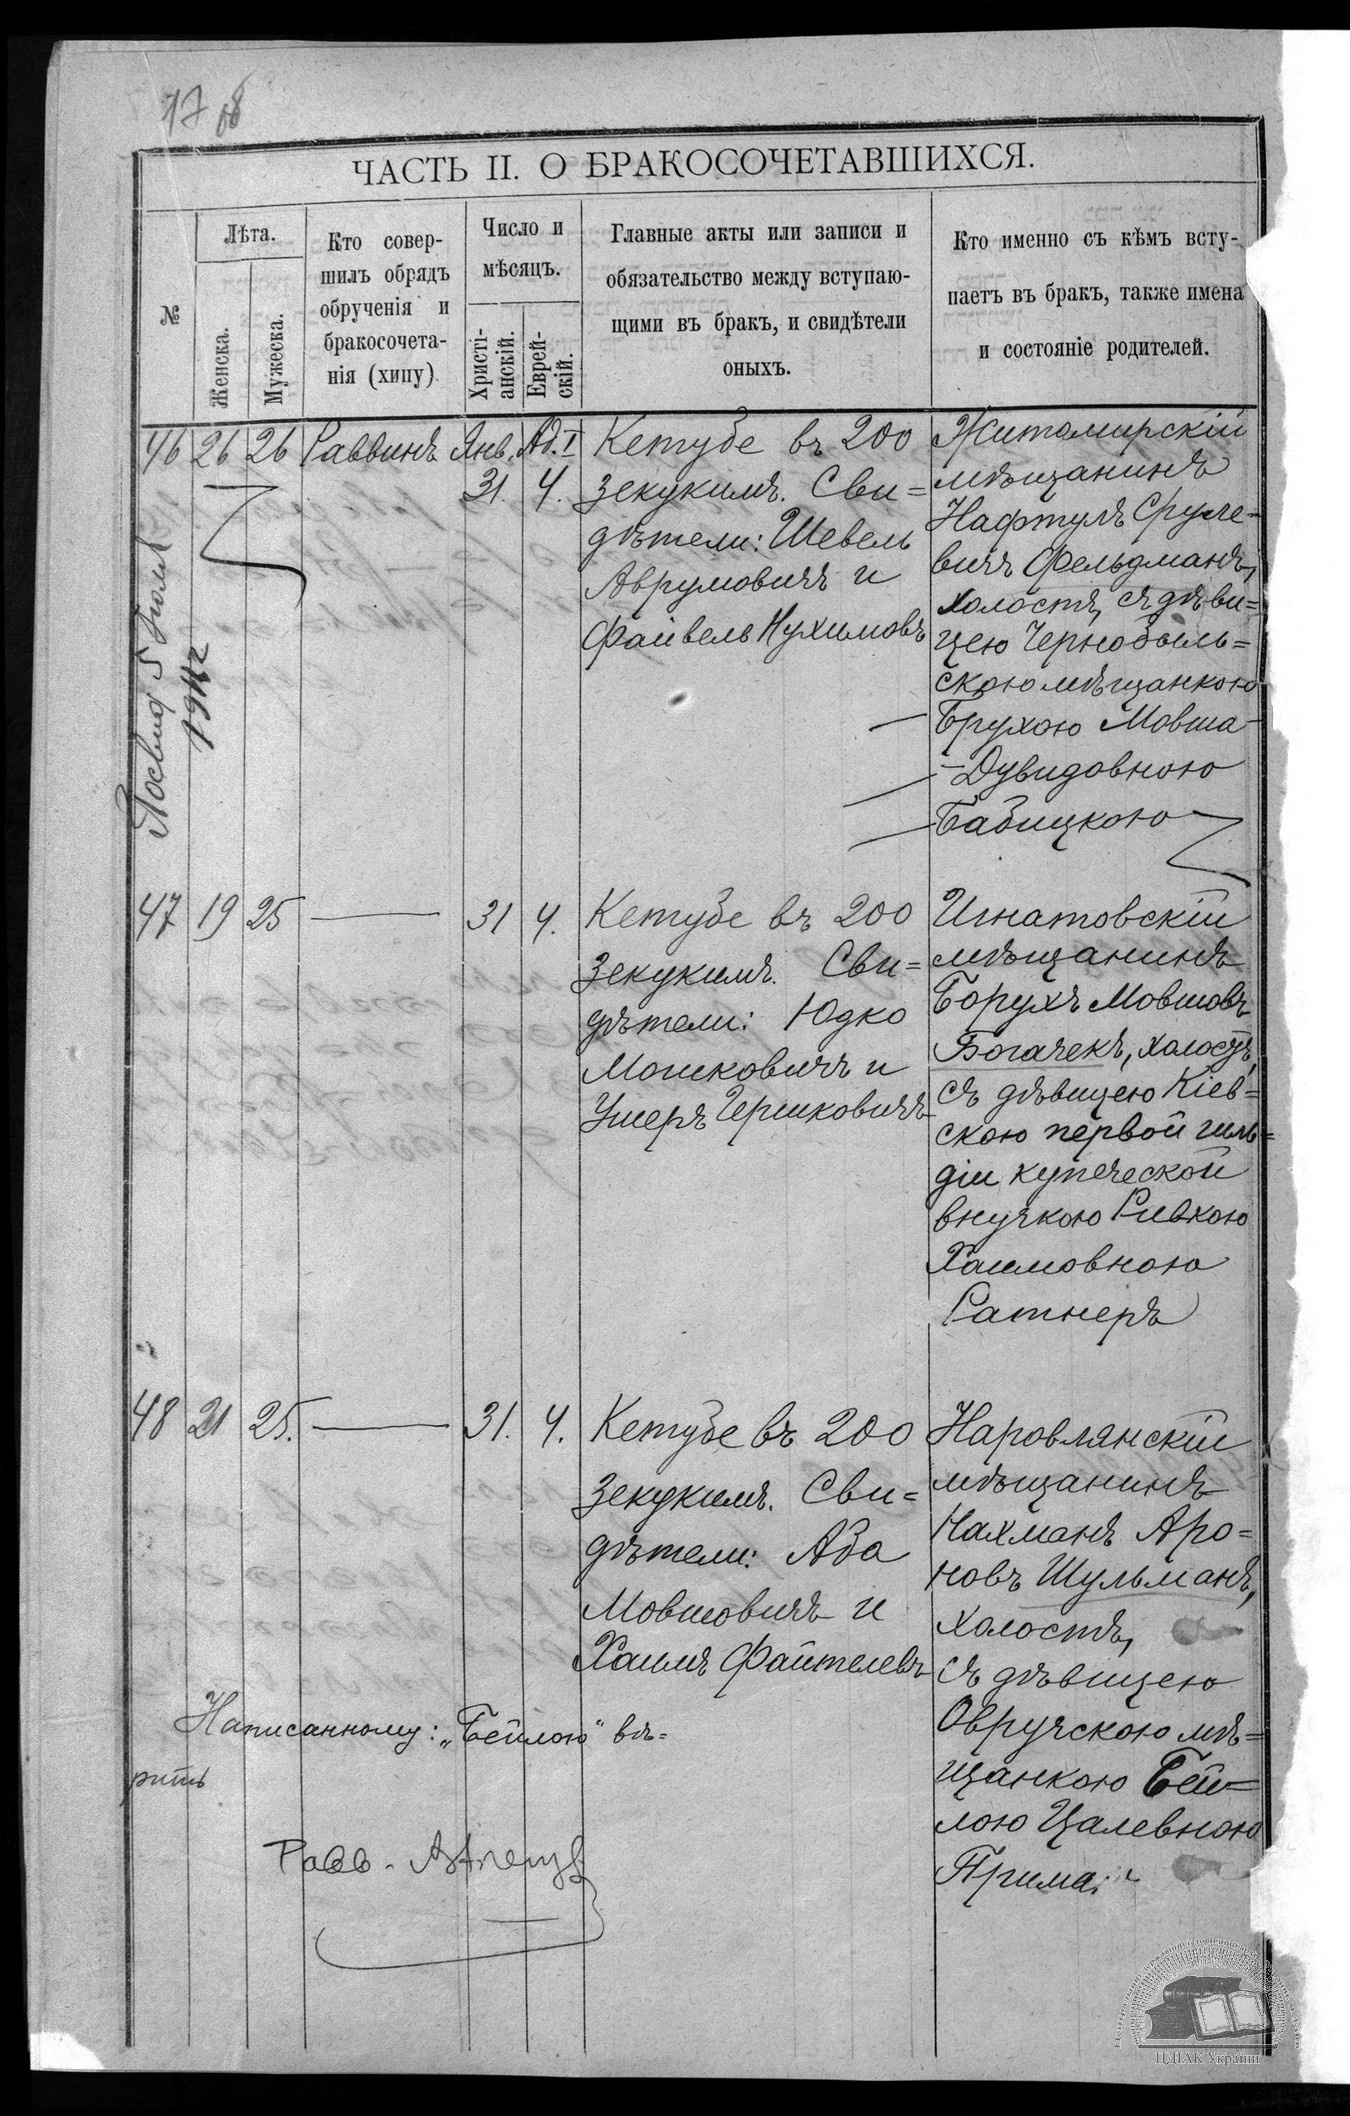 17 68
ЧАСТЬ II. О БРАКОСОЧЕТАВШИХСЯ.
№
Лѣта.
Женска.
Мужеска.
Кто совер-
шилъ обрядъ
обрученія и
бракосочета-
нія (хипу)
Число и
мѣсяцъ.
Христі-
анскій.
Еврей-
скій.
Главные акты или записи и
обязательство между вступаю-
щими въ бракъ, и свидѣтели
оныхъ.
Кто именно съ кѣмъ всту-
паетъ въ бракъ, также имена
и состояніе родителей.
46 26 26 Раввинъ Янв. Ад. I
31 4.
Кетубе въ 200
зекукимъ. Сви=
дѣтели: Шевель
Аврумовичъ и
Файвель Нухимовъ
Житомирскій
мѣщанинъ
Нафтулъ Сруле-
вичъ Фельдманъ,
холостъ, съ дѣви=
цею Чернобыль=
скою мѣщанкою
Брухою Мовша-
-Дувидовною
Бабицкою
5
1911 г
47 19 25 — 31 4.
Кетубе въ 200
зекукимъ. Сви=
дѣтели: Юдко
Мошковичъ и
Ушеръ Гершковичъ
Игнатовскій
мѣщанинъ
Борухъ Мовшовъ
Богачекъ, холостъ,
съ дѣвицею Кіев=
скою первой гиль=
діи купеческой
внучкою Ривкою
Хаимовною
Ратнеръ
48 21 25. — 31. 4.
Кетубе въ 200
зекукимъ. Сви=
дѣтели: Аба
Мовшовичъ и
Хаимъ Файтелевъ
Наровлянскій
мѣщанинъ
Нахманъ Аро=
новъ Шульманъ,
холостъ,
съ дѣвицею
Овручскою мѣ=
щанкою Бей=
лою Цалевною
Прима.
Написанному: „Бейлою“ вѣ=
рить
Равв.
ЦДІАК України